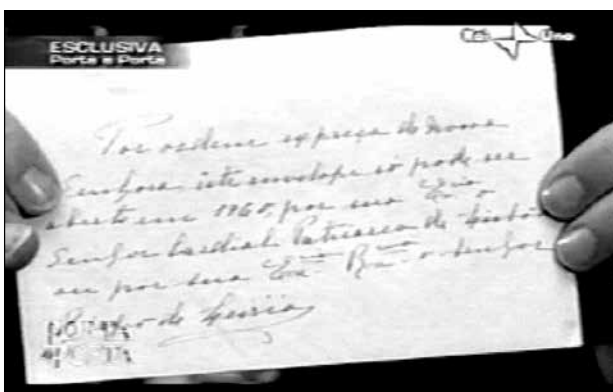 ESCLUSIVA
Porta a Porta
Uno
Por ordem expreça de Nossa
Senhora este envelope só pode ser
aberto em 1960, por sua o
Senhor Cardial Patriarca de
ou por sua o Senhor
de Leiria